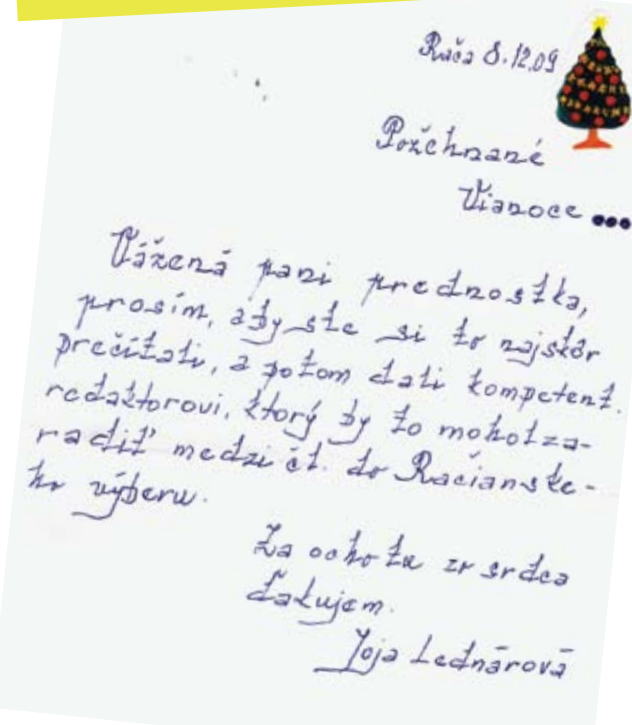 Rača 8.12.09
Požehnané
Vianoce ...
Vážená pani prednostka,
prosím, aby ste si to najskôr
prečítali, a potom dali kompetent.
redaktorovi, ktorý by to mohol za-
radiť medzi čl. do Račianske-
ho výberu.
Za ochotu zo srdca
ďakujem.
Joja Lednárová